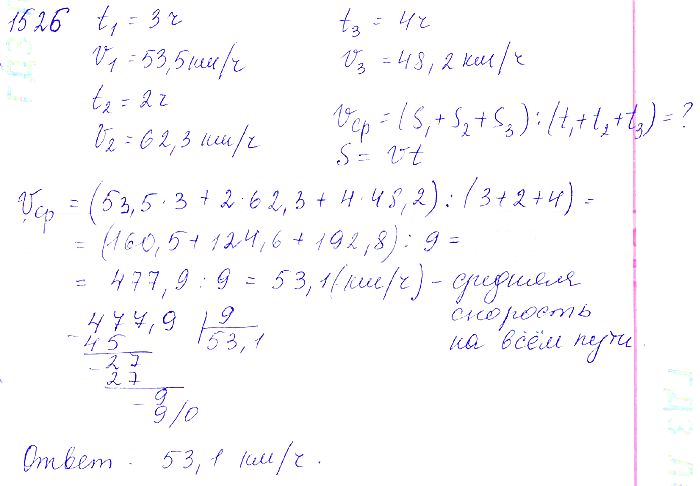 1526 t₁ = 3ч t₃ = 4ч
v₁ = 53,5 км/ч v₃ = 48,2 км/ч
t₂ = 2ч
v₂ = 62,3 км/ч vср = (S₁+S₂+S₃):(t₁+t₂+t₃) = ?
S = vt
vср = (53,5·3 + 2·62,3 + 4·48,2) : (3+2+4) =
= (160,5+124,6+192,8) : 9 =
= 477,9 : 9 = 53,1 (км/ч) – средняя
скорость
на всём пути
477,9 | 9
- 45 53,1
- 27
27
- 9
9/0
Ответ. 53,1 км/ч.